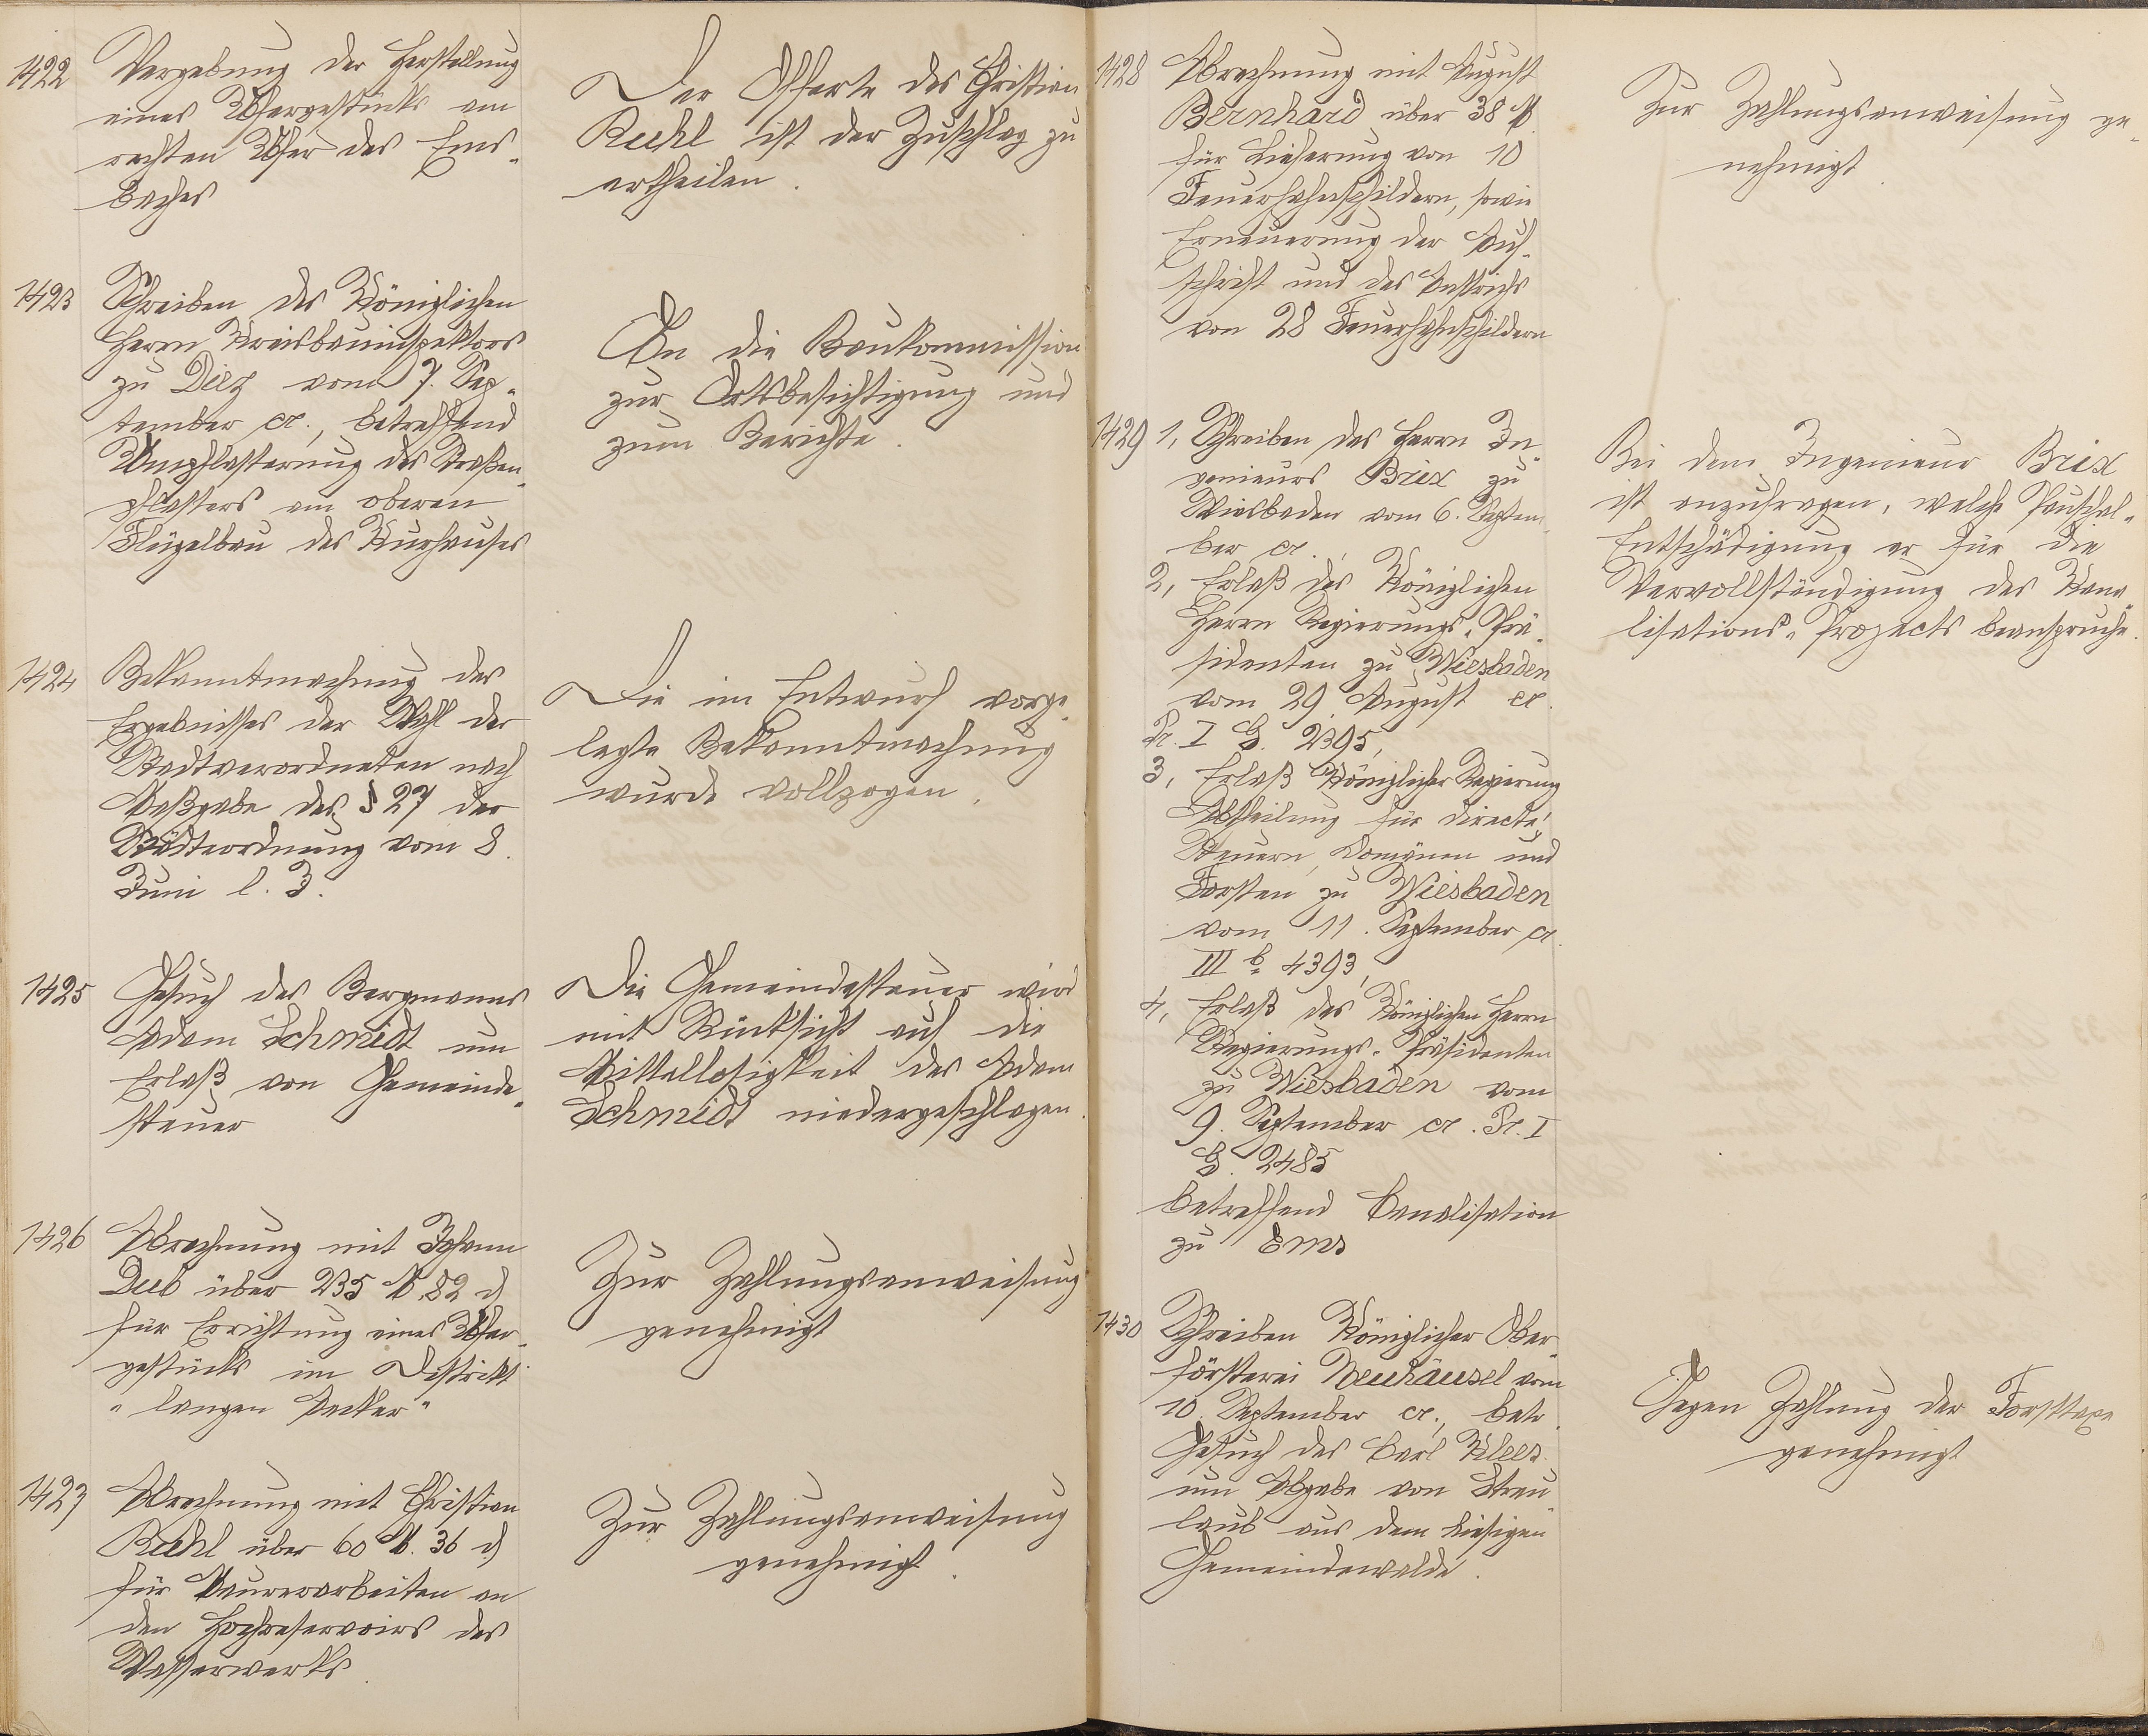 1422
Vergebung der Herstellung
eines Ufergestücks am
rechten Ufer des Ems-
baches
Der Offerte des Christian
Ruhl ist der Zuschlag zu
ertheilen.
1423
Schreiben des Königlichen
Herrn Kreisbauinspektors
zu Diez vom 7. Sep-
tember cr., betreffend
Umpflasterung des Straßen-
pflasters am oberen
Flügelbau des Kurhauses
An die Baukommission
zur Ortsbesichtigung und
zum Berichte.
1424
Bekanntmachung des
Ergebnisses der Wahl der
Stadtverordneten nach
Maßgabe des § 27 der
Städteordnung vom 8.
Juni l. J.
Die im Entwurf vorge-
legte Bekanntmachung
wurde vollzogen.
1425
Gesuch des Bergmanns
Adam Schmidt um
Erlaß von Gemeinde-
steuer
Die Gemeindesteuer wird
mit Rücksicht auf die
Mittellosigkeit des Adam
Schmidt niedergeschlagen.
1426
Abrechnung mit Johann
Deeb über 235 M 82 d
für Errichtung eines Ufer-
gestücks im Distrikt
"langen Aecker"
Zur Zahlungsanweisung
genehmigt
1427
Abrechnung mit Christian
Ruhl über 60 M. 36 d
für Maurerarbeiten an
den Hochreservoirs des
Wasserwerks.
Zur Zahlungsanweisung
genehmigt.
1428
Abrechnung mit August
Bernhard über 38 M.
für Lieferung von 10
Feuerhahnschildern, sowie
Erneuerung der Auf-
schrift und des Anstrichs
von 28 Feuerhahnschildern
Zur Zahlungsanweisung ge-
nehmigt.
1429
1, Schreiben des Herrn In-
genieurs Brix zu
Wiesbaden vom 6. Septem-
ber cr.,
2, Erlaß des Königlichen
Herrn Regierungs-Prä-
sidenten zu Wiesbaden
vom 29 August cr.
Pr. I G. 2395,
3, Erlaß Königlicher Regierung
Abtheilung für directe
Steuern, Domänen und
Forsten zu Wiesbaden
vom 11. September cr.
III b 4393,
4, Erlaß des Königlichen Herrn
Regierungs-Präsidenten
zu Wiesbaden vom
9. September cr. Pr. I
G. 2485
betreffend Canalisation
zu Ems
Bei dem Ingenieur Brix
ist anzufragen, welche Pauschal-
Entschädigung er für die
Vervollständigung des Kana-
lisations-Projects beanspruche.
1430
Schreiben Königlicher Ober-
försterei Neuhäusel vom
10 September cr., betr.
Gesuch des Carl Klees
um Abgabe von Streu-
laub aus dem hiesigen
Gemeindewalde.
Gegen Zahlung der Forsttaxe
genehmigt